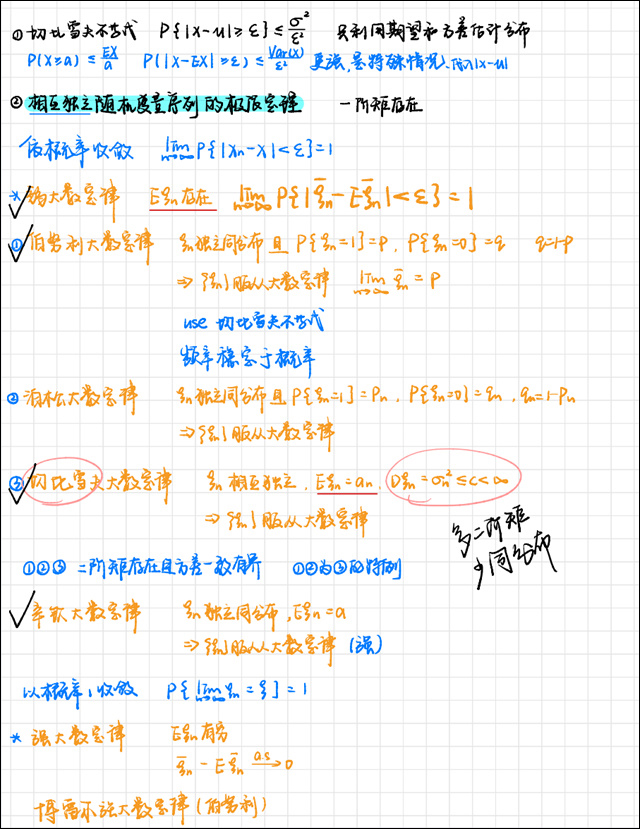 ① 切比雪夫不等式 P{|X-u|≥ε}≤σ²/ε² 只利用期望和方差估计分布
P(X≥a)≤EX/a P(|X-EX|≥ε)≤Var(X)/ε² 更强,是特殊情况、代入|X-u|
② 相互独立随机变量序列的极限定理 一阶矩存在
依概率收敛 lim n→∞ P{|Xn-X|<ε}=1
* 弱大数定律 Eξn存在 lim n→∞ P{|ξ̄n-Eξ̄n|<ε}=1
① 伯努利大数定律 ξn独立同分布且 P{ξn=1}=p, P{ξn=0}=q q=1-p
⇒ {ξn}服从大数定律 lim n→∞ ξ̄n=p
use 切比雪夫不等式
频率稳定于概率
② 泊松大数定律 ξn独立同分布且P{ξn=1}=Pn, P{ξn=0}=qn, qn=1-Pn
⇒{ξn}服从大数定律
③ 切比雪夫大数定律 ξn 相互独立, Eξn=an, Dξn=σn²≤c<∞
⇒{ξn}服从大数定律
多二阶矩
少同分布
①②③ 二阶矩存在且方差一致有界 ①②为③的特例
辛钦大数定律 ξn独立同分布,Eξn=a
⇒{ξn}服从大数定律 (强)
以概率1收敛 P{lim n→∞ ξn=ξ}=1
* 强大数定律 Eξn有穷
ξ̄n-Eξ̄n a.s→0
博雷尔强大数定律(伯努利)